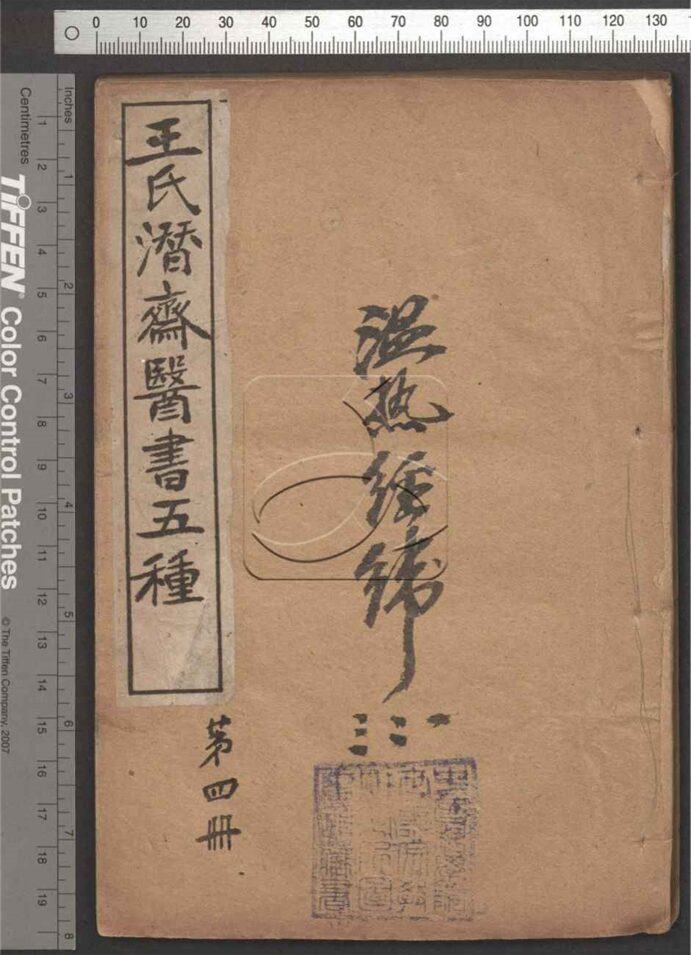 0 10 20 30 40 50 60 70 80 90 100 110 120 130
王氏潜齋醫書五種
温热經緯
一 二 三
第四冊
Inches 1 2 3 4 5 6 7 8
Centimetres 1 2 3 4 5 6 7 8 9 10 11 12 13 14 15 16 17 18 19
TIFFEN® Color Control Patches © The Tiffen Company, 2007